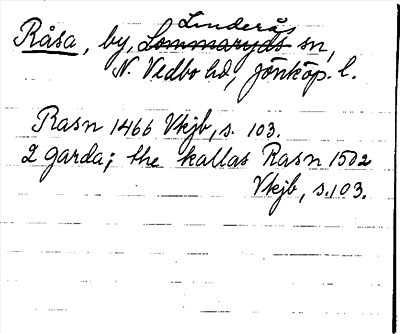 Linderås
Råsa, by, Lommaryds sn,
N. Vedbo hd, Jönköp. l.
Rasn 1466 Vkjb, s. 103.
2 garda; the kallas Rasn 1502
Vkjb, s.103.